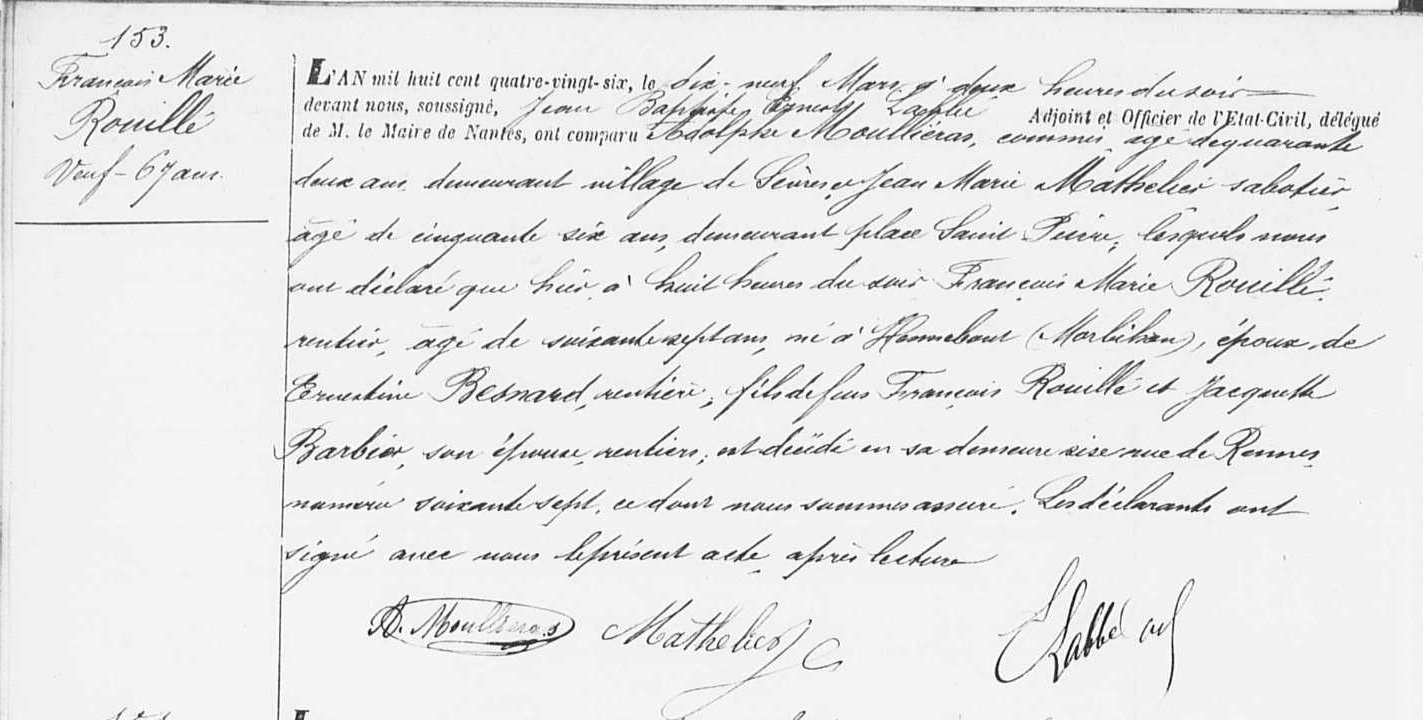 153.
François Marie
Rouillé
Veuf - 67 ans.
L'AN mil huit cent quatre-vingt-six, le dix-neuf Mars à deux heures du soir
devant nous, soussigné, Jean Baptiste Ernest Labbé Adjoint et Officier de l'Etat-Civil, délégué
de M. le Maire de Nantes, ont comparu Adolphe Moulliéras, commis, agé de quarante
deux ans, demeurant village de Sèvres, et Jean Marie Mathelier sabotier,
âgé de cinquante six ans, demeurant place Saint Pierre, lesquels nous
ont déclaré que hier, à huit heures du soir François Marie Rouillé,
rentier, âgé de soixante sept ans, né à Hennebont (Morbihan), époux de
Ernestine Besnard, rentière, fils de feus François Rouillé et Jacquette
Barbier, son épouse, rentiers, est décédé en sa demeure sise rue de Rennes,
numéro soixante sept, ce dont nous sommes assuré. Les déclarants ont
signé avec nous le présent acte, après lecture
A. Moulliéras Mathelier Labbé adj